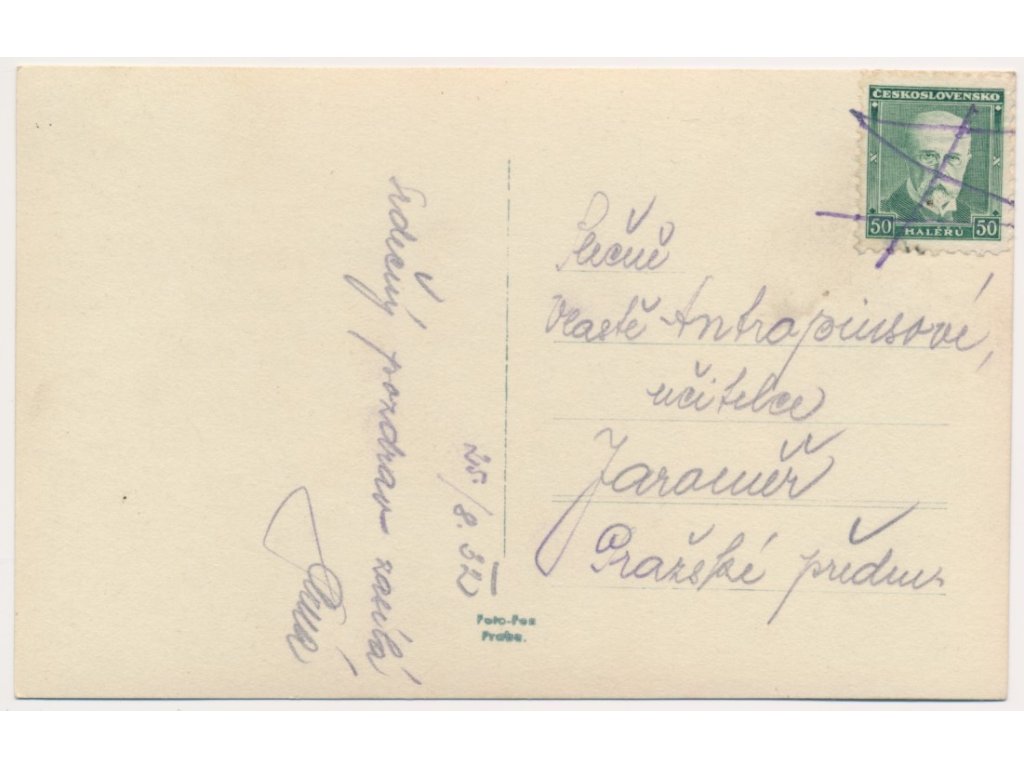 Srdečný pozdrav zasílá
25/8. 32
Slečně
Vlastě Antropiusové,
učitelce
Jaroměř
Pražské předm.
ČESKOSLOVENSKO
50 HALÉŘŮ 50
Foto-Fon
Praha.